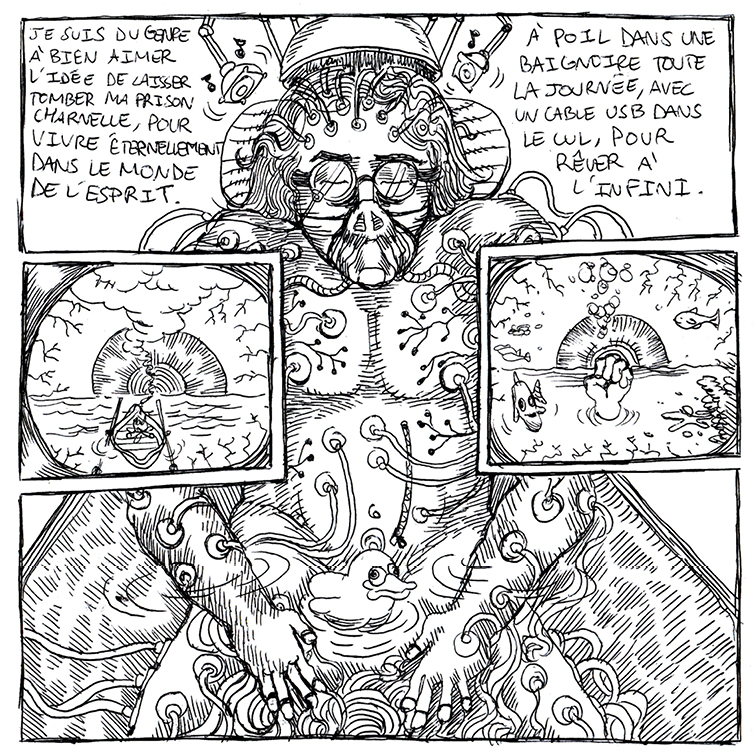 JE SUIS DU GENRE
À BIEN AIMER
L'IDÉE DE LAISSER
TOMBER MA PRISON
CHARNELLE, POUR
VIVRE ÉTERNELLEMENT
DANS LE MONDE
DE L'ESPRIT.
À POIL DANS UNE
BAIGNOIRE TOUTE
LA JOURNÉE, AVEC
UN CABLE USB DANS
LE CUL, POUR
RÊVER À
L'INFINI.